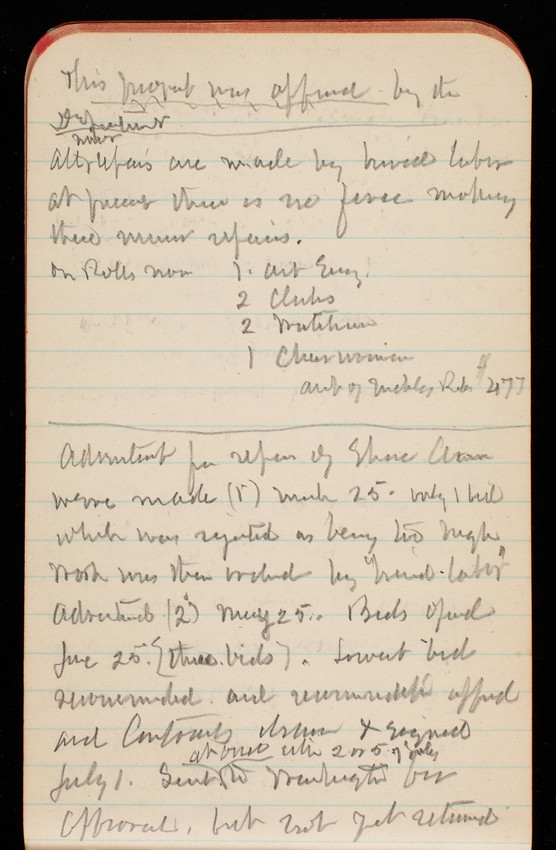 This project was approved by the
Department
minor
All repairs are made by hired labor
at present there is no force making
these minor repairs.
On Rolls now 1. Asst Eng.
2 Clerks
2 Watchmen
1 Charwoman
amt of Monthly Rolls $477
Advertisement for repair of Stone
were made (1) March 25. only 1 bid
which was rejected as being too high
Work was then ordered by "hired-labor"
Advertised (2) May 25. Bids opened
June 25. {three bids}. Lowest bid
recommended. and recommendation approved
and Contracts drawn & signed
at once either 2 or 5 of July
July 1. Sent to Washington for
approval, but not yet returned